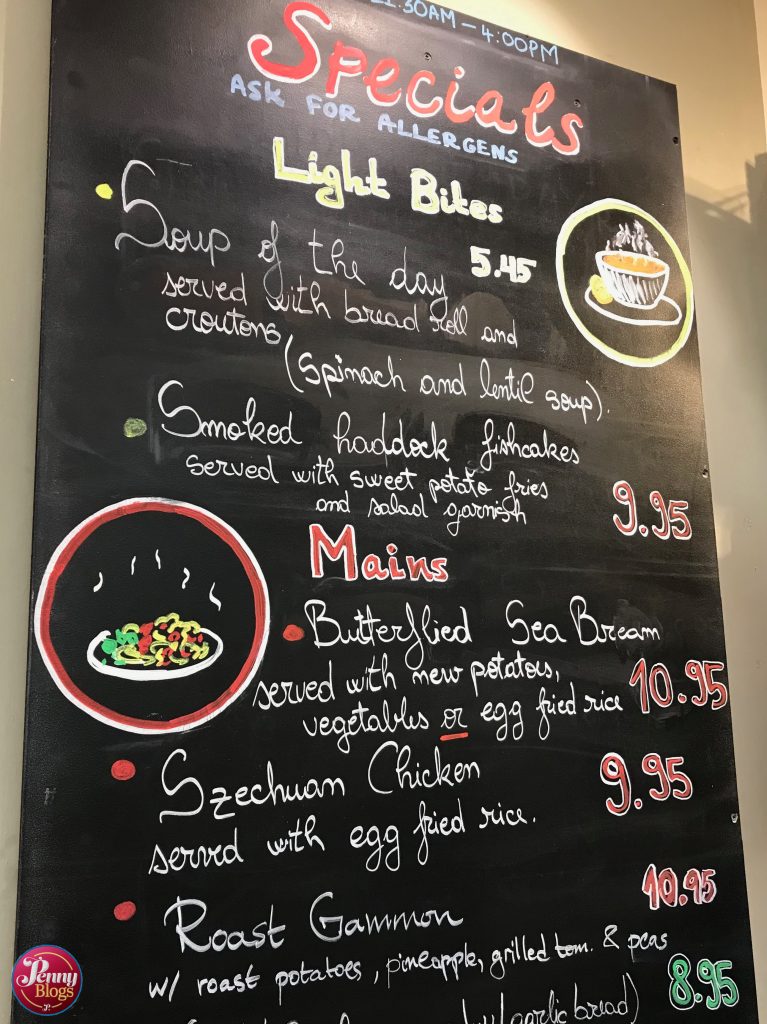 11:30AM – 4:00PM
Specials
ASK FOR ALLERGENS
Light Bites
Soup of the day 5.45
served with bread roll and
croutons
(spinach and lentil soup).
Smoked haddock fishcakes
served with sweet potato fries
and salad garnish 9.95
Mains
Butterflied Sea Bream
served with new potatoes,
vegetables or egg fried rice 10.95
Szechuan Chicken 9.95
served with egg fried rice.
Roast Gammon 10.95
w/ roast potatoes, pineapple, grilled tom. & peas
8.95
garlic bread)
Penny
Blogs